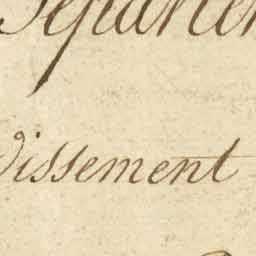 Départe
dissement